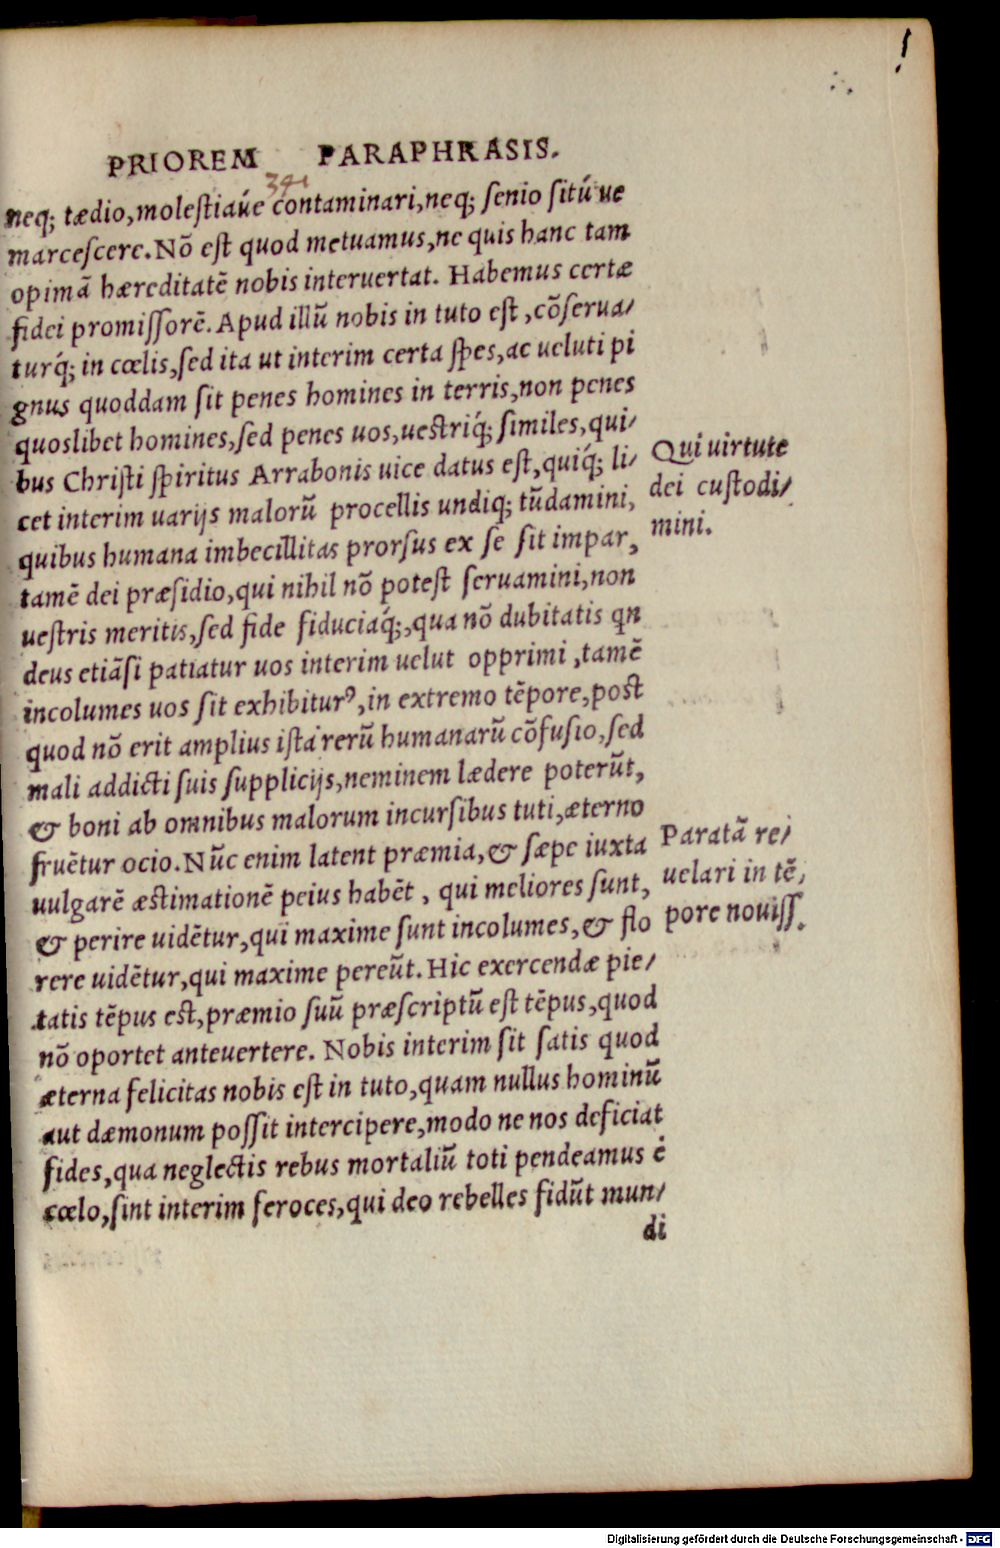 PRIOREM PARAPHRASIS.
341
neq; tædio, molestiaúe contaminari, neq; senio sitúue
marcescere. Nō est quod metuamus, ne quis hanc tam
opimā hæreditatē nobis interuertat. Habemus certæ
fidei promissorē. Apud illū nobis in tuto est, cōserua/
turq́; in cœlis, sed ita ut interim certa spes, ac ueluti pi
gnus quoddam sit penes homines in terris, non penes
quoslibet homines, sed penes uos, uestriq́; similes, qui/
bus Christi spiritus Arrabonis uice datus est, quiq́; li/
cet interim uarijs malorū procellis undiq; tūdamini,
quibus humana imbecillitas prorsus ex se sit impar,
tamē dei præsidio, qui nihil nō potest seruamini, non
uestris meritis, sed fide fiduciaq́;, qua nō dubitatis qn
deus etiāsi patiatur uos interim uelut opprimi, tamē
incolumes uos sit exhibiturꝰ, in extremo tēpore, post
quod nō erit amplius ista rerū humanarū cōfusio, sed
mali addicti suis supplicijs, neminem lædere poterūt,
& boni ab omnibus malorum incursibus tuti, æterno
fruētur ocio. Nūc enim latent præmia, & sæpe iuxta
uulgarē æstimationē peius habēt, qui meliores sunt,
& perire uidētur, qui maxime sunt incolumes, & flo
rere uidētur, qui maxime pereūt. Hic exercendæ pie/
tatis tēpus est, præmio suū præscriptū est tēpus, quod
nō oportet anteuertere. Nobis interim sit satis quod
æterna felicitas nobis est in tuto, quam nullus hominū
aut dæmonum possit intercipere, modo ne nos deficiat
fides, qua neglectis rebus mortaliū toti pendeamus ė
cœlo, sint interim feroces, qui deo rebelles fidūt mun/
di
Qui uirtute
dei custodi/
mini.
Paratā re/
uelari in tē/
pore nouiss.
Digitalisierung gefördert durch die Deutsche Forschungsgemeinschaft - DFG